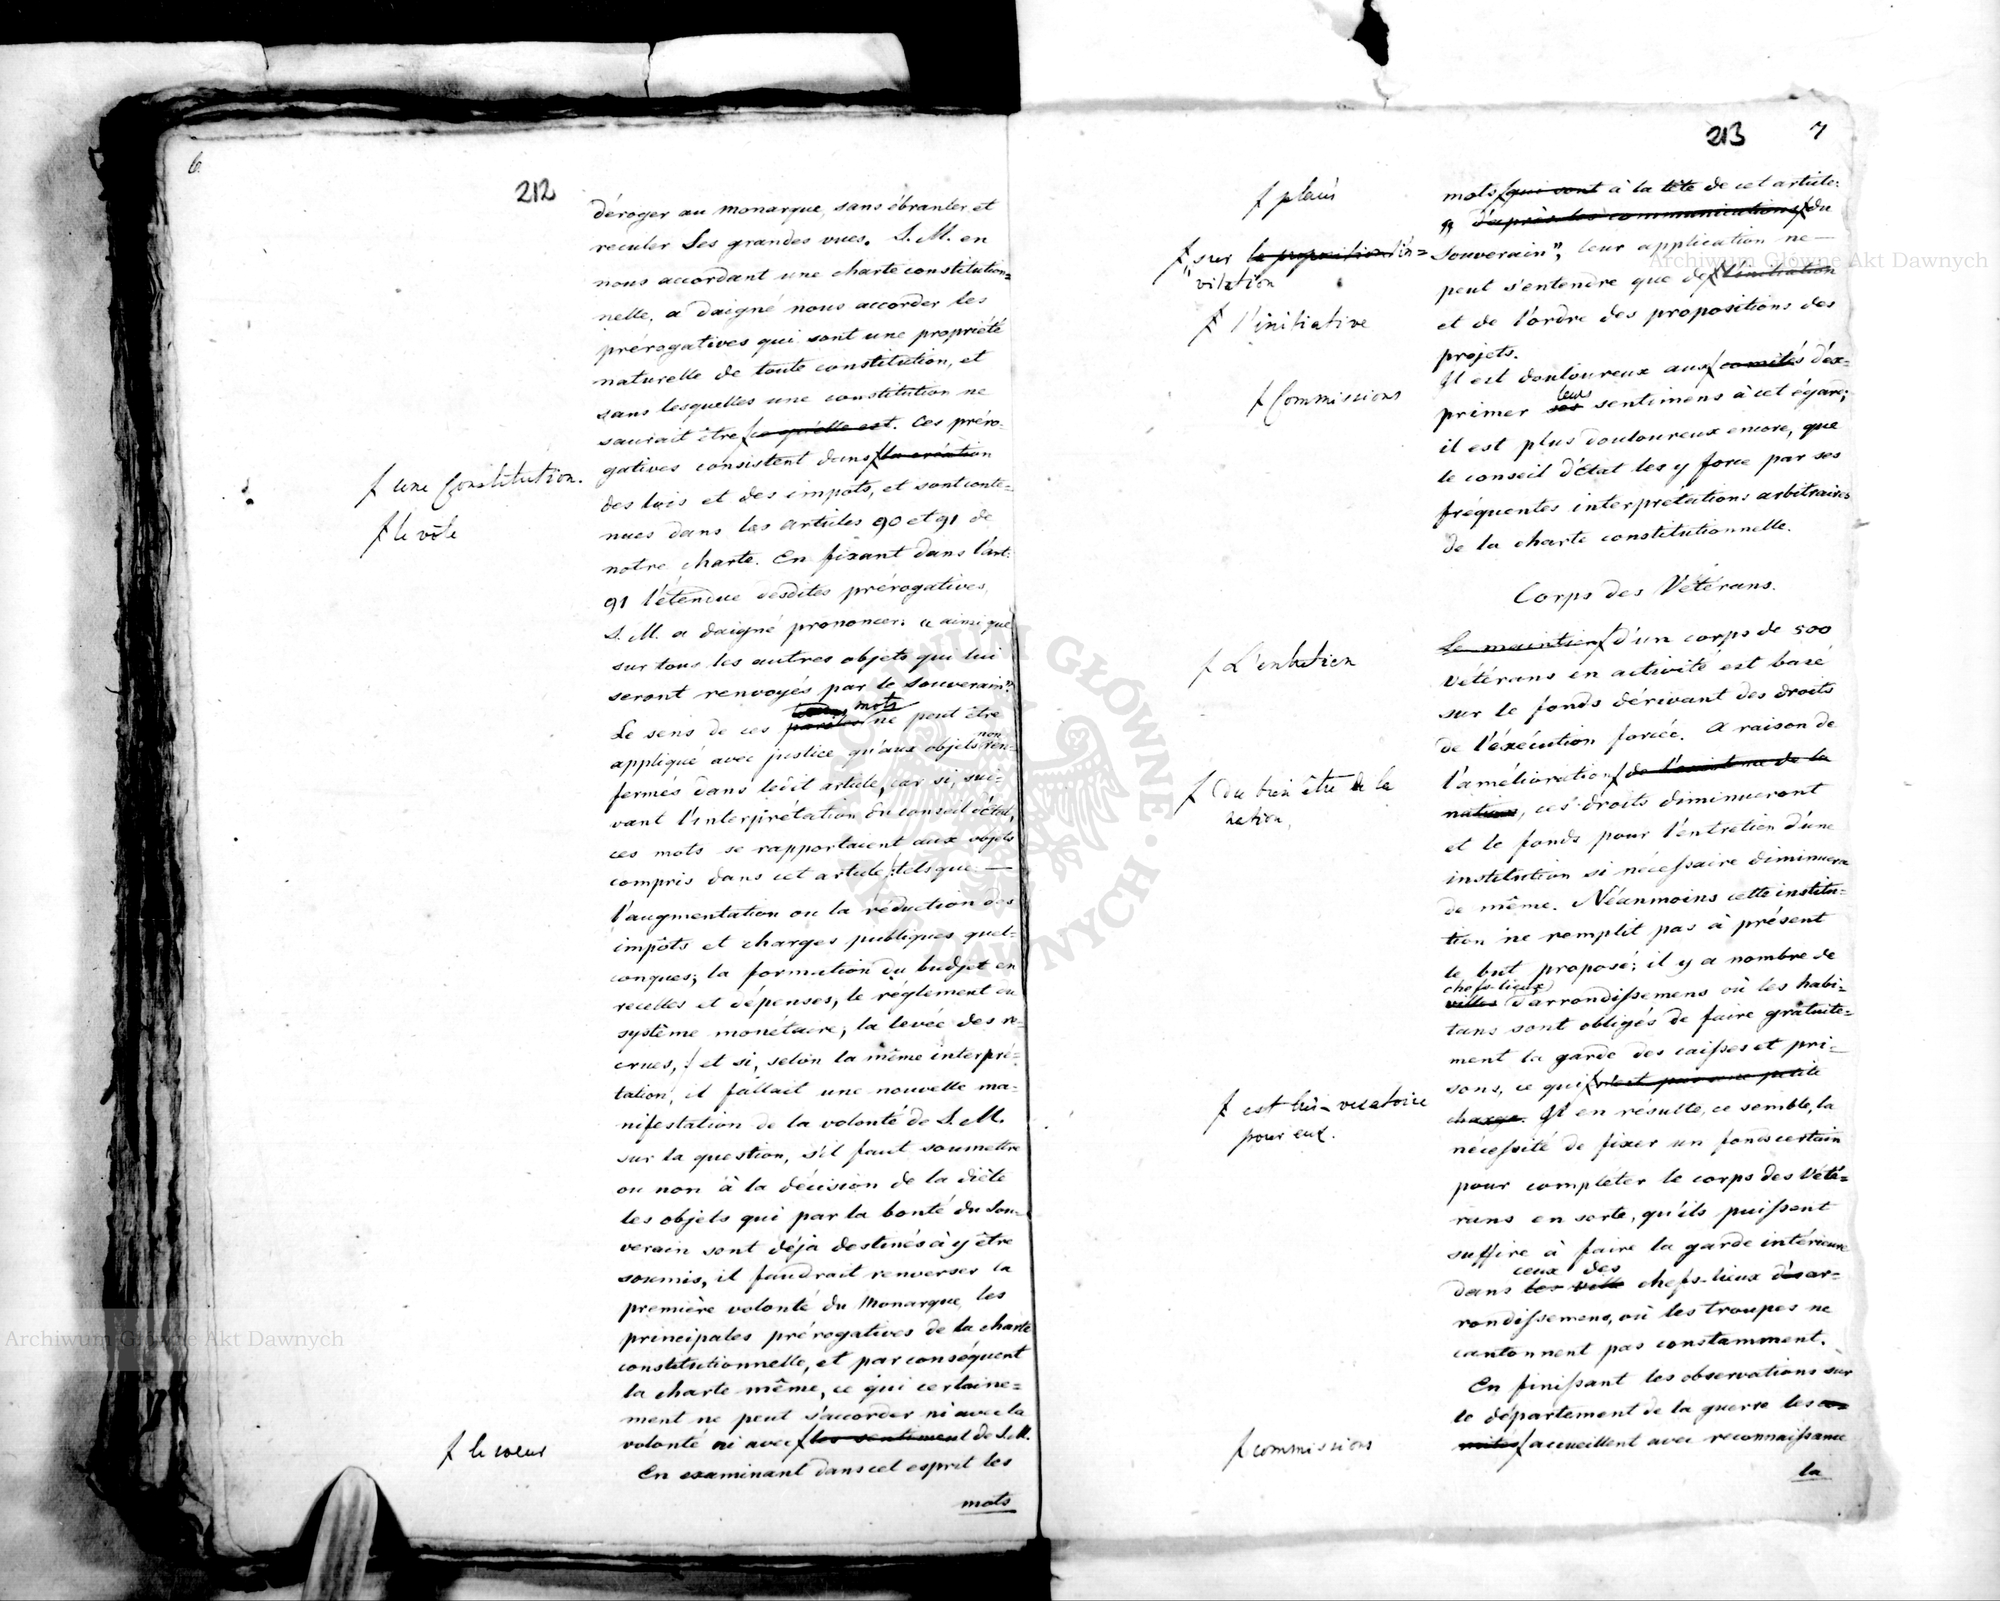 6
212
déroger au monarque, sans ébranler et
reculer Ses grandes vues. S. M. en
nous accordant une charte constitution=
nelle, a daigné nous accorder les
prérogatives qui sont une propriété
naturelle de toute constitution, et
sans lesquelles une constitution ne
saurait être ƒ ce qu'elle est. Ces préro-
gatives consistent dans ƒ la création
ƒ une Constitution.
des lois et des impôts, et sont conte=
nues dans les articles 90 et 91 de
ƒ le vôte
notre charte. En fixant dans l'art.
91 l'étendue desdites prérogatives,
S. M. a daigné prononcer: „ ainsi que
sur tous les autres objets qui lui
seront renvoyés par le Souverain"
mots
Le sens de ces paroles ne peut être
appliqué avec justice qu'aux objets non ren-
fermés dans ledit article, car si, sui-
vant l'interprétation du conseil d'état,
ces mots se rapportaient aux objets
compris dans cet article, tels que: —
l'augmentation ou la réduction des
impôts et charges publiques quel-
conques; la formation du budjet en
recettes et dépenses, le réglement du
système monétaire; la levée des re-
crues, ! et si, selon la même interpré-
tation, il fallait une nouvelle ma-
nifestation de la volonté de S. M.
sur la question, s'il faut soumettre
ou non à la décision de la diète
les objets qui par la bonté du Sou-
verain sont déjà destinés à y être
soumis, il faudrait renverser la
première volonté du Monarque, les
principales prérogatives de la charte
constitutionnelle, et par conséquent
la charte même, ce qui certaine=
ment ne peut s'accorder ni avec la
volonté ni avec ƒ les sentiment de S. M.
ƒ le coeur
En examinant dans cet esprit les
mots
213
7
mots ƒ qui sont à la tête de cet article:
ƒ placés
„ d'après les communications ƒ du
ƒ „sur la proposition l'in=
vitation
Souverain", leur application ne —
peut s'entendre que de ƒ l'invitation
ƒ l'initiative
et de l'ordre des propositions des
projets.
Il est douloureux aux ƒ comités d'ex-
ƒ Commissions
leurs
primer ses sentimens à cet égard;
il est plus douloureux encore, que
le conseil d'état les y force par ses
fréquentes interprétations arbitraires
de la charte constitutionnelle.
Corps des Vétérans.
Le maintien ƒ d'un corps de 500
ƒ L'entretien
vétérans en activité est basé
sur le fonds dérivant des droits
de l'éxécution forcée. A raison de
l'amélioration ƒ de l'existence de la
ƒ du bien être de la
nation,
nation, ces droits diminueront
et le fonds pour l'entretien d'une
institution si nécessaire diminuera
de même. Néanmoins cette institu-
tion ne remplit pas à présent
le but proposé; il y a nombre de
chefs-lieux
villes d'arrondissemens où les habi-
tans sont obligés de faire gratuite=
ment la garde des caisses et pri-
sons, ce qui ƒ n'est pas une petite
ƒ est très-vexatoire
pour eux.
charge. Il en résulte, ce semble, la
nécessité de fixer un fonds certain
pour compléter le corps des Vété=
rans en sorte, qu'ils puissent
suffire à faire la garde intérieure
ceux des
dans les ville chefs-lieux d'ar-
rondissemens, où les troupes ne
cantonnent pas constamment.
En finissant les observations sur
le département de la guerre les co-
mités ƒ accueillent avec reconnaissance
ƒ commissions
la
Archiwum Główne Akt Dawnych
Archiwum Główne Akt Dawnych
ARCHIWUM GŁÓWNE AKT DAWNYCH